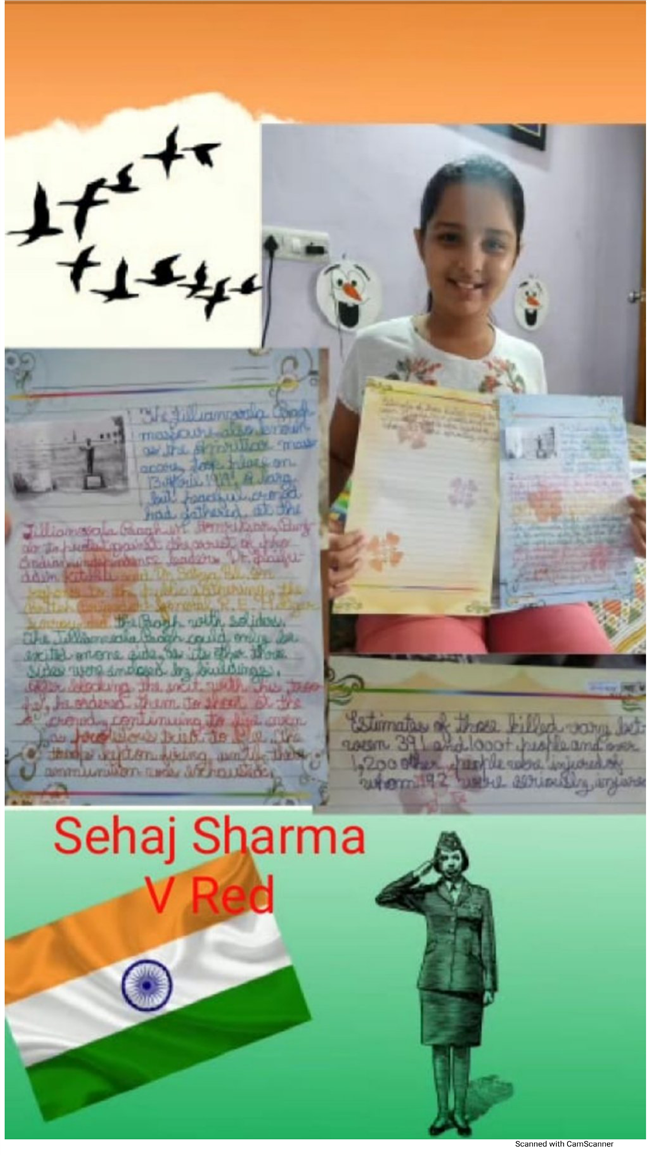 The Jillianwala Bagh
massacure, also known
as the Amritsar mas
acare, took place on
13 April 1919. A larg
but peaceful crowd
had gathered at the
Jillianwala Bagh in Amritsar, Punj-
ab to protest against the arrest of pro-
Indian independence leaders Dr. Saifu-
ddin Kitchlu and Dr. Satya Pal. In
response to the public gathering, the
British General R. E. H. Dyer
the Bagh with soliders.
The Jillianwala Bagh could only be
exited on one side, as its other three
sides were enclosed by buildings.
After blocking the exit with his troo-
ps, he ordered them to shoot at the
crowd, continuing to fire even
as tried to flee. The
troops kept on firing until their
ammunition were exhausted.
Estimates of those killed vary bet-
ween 391 and 1000+ people and over
1,200 other people were injured of
whom 192 were seriously injure
Sehaj Sharma
V Red
Scanned with CamScanner